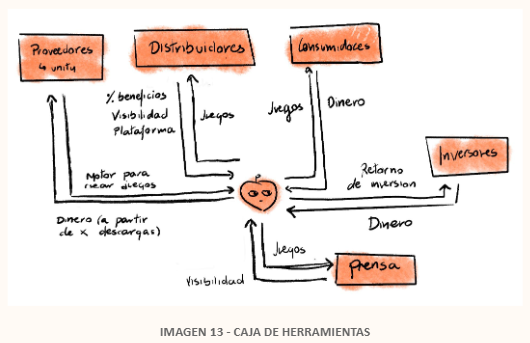 Proveedores
↳ unity
Distribuidores
Consumidores
% beneficios
Visibilidad
Plataforma
Juegos
Juegos
Dinero
Inversores
Motor para
crear juegos
Retorno
de inversion
Dinero (a partir
de x descargas)
Dinero
Juegos
Visibilidad
prensa
IMAGEN 13 - CAJA DE HERRAMIENTAS